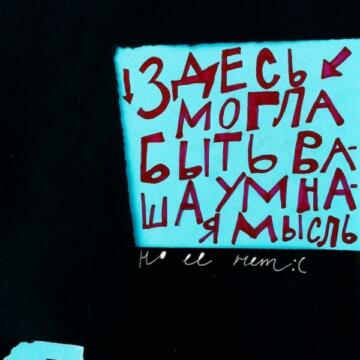 ЗДЕСЬ
МОГЛА
БЫТЬ ВА-
ША УМНА-
Я МЫСЛЬ
но ее нет:(